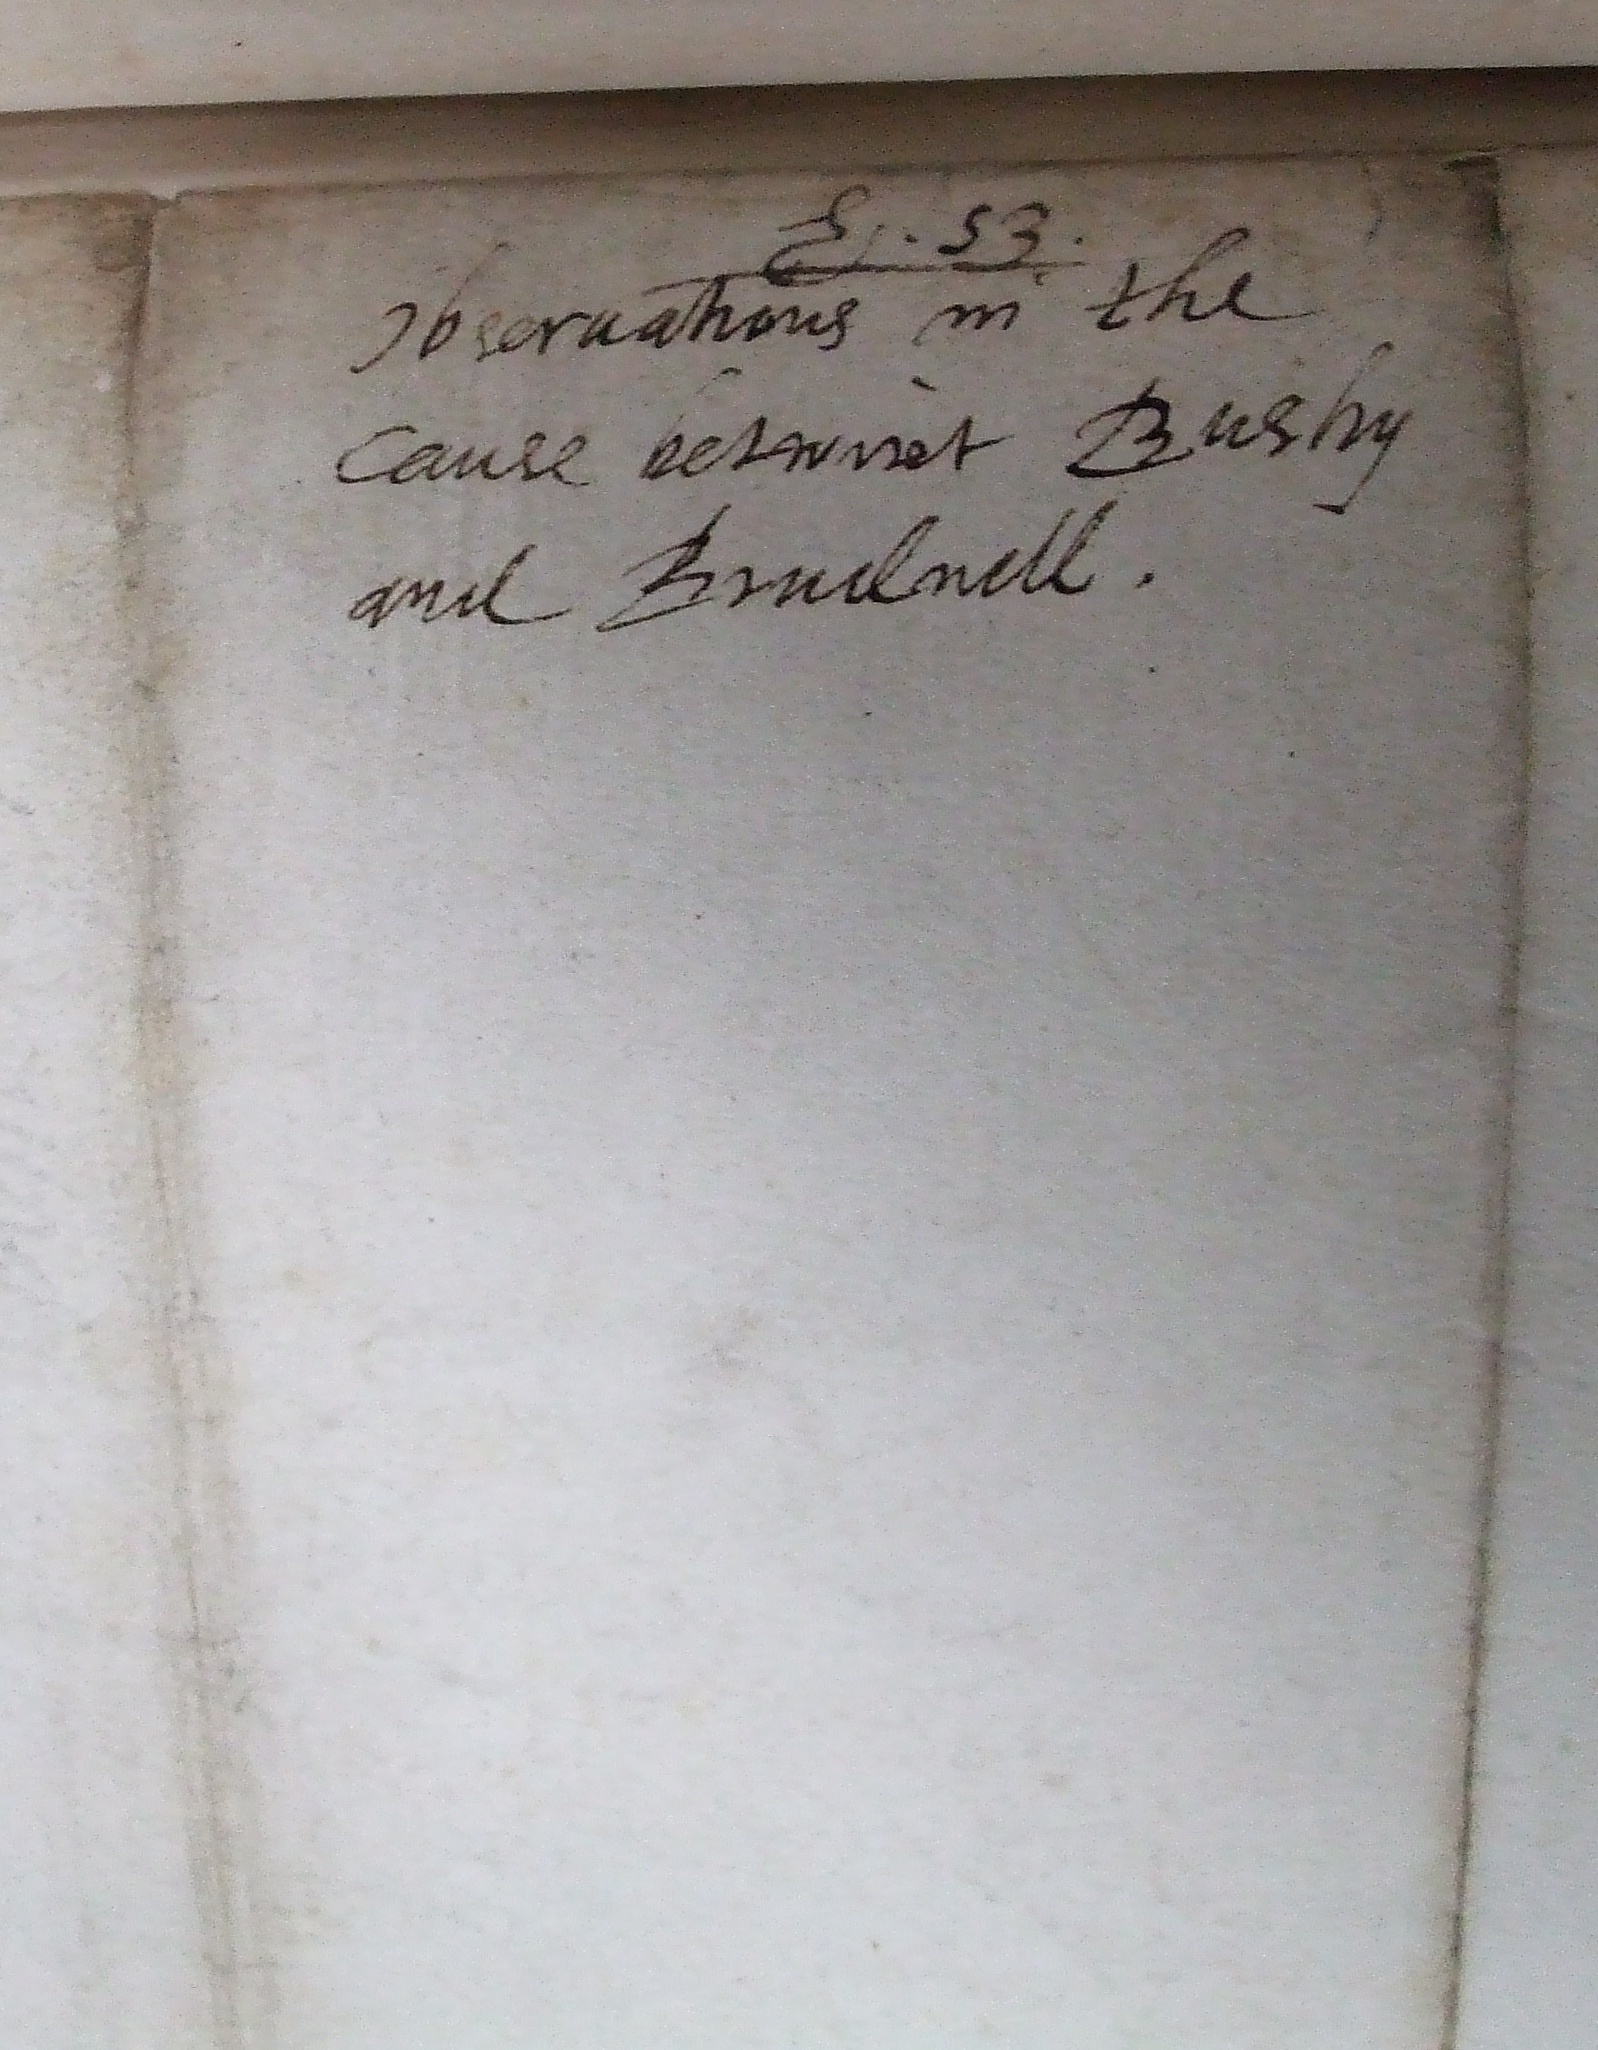 E. 53.
Observations in the
cause betwixt Bushy
and Brudnell.